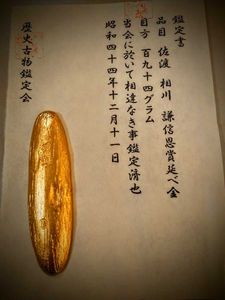 鑑定書
品目 佐渡 相川 謙信恩賞延べ金
目方 百九十四グラム
当会に於いて相違なき事鑑定済也
昭和四十四年十二月十一日
歴史古物鑑定会